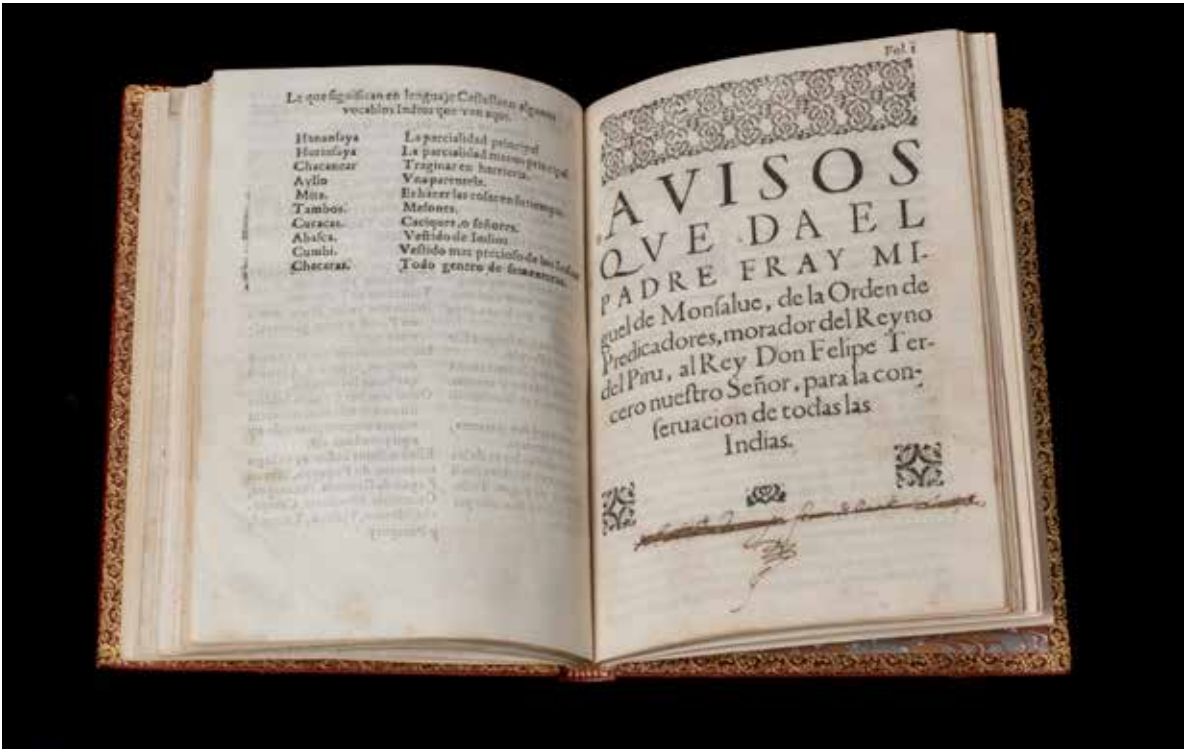 Lo que significan en lenguaje Castellano algunos
vocablos Indios que van aqui.
Hanansaya La parcialidad principal
Hurinsaya La parcialidad menos principal
Chacanear Traginar en harrieria.
Ayllo Vna parentela.
Mita. Es hacer las cosas en su tiempo.
Tambos. Mesones.
Curacas. Caciques, o señores.
Abasca. Vestido de Indios
Cumbi. Vestido mas precioso de los Indios
Checaras. Todo genero de sementeras.
Fol. 1
AVISOS
QVE DA EL
PADRE FRAY MI-
guel de Monsalue, de la Orden de
Predicadores, morador del Reyno
del Piru, al Rey Don Felipe Ter-
cero nuestro Señor, para la con-
seruacion de todas las
Indias.